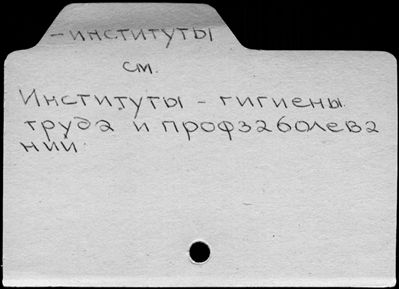 -институты
см.
Институты - гигиены
труда и профзаболева
ний